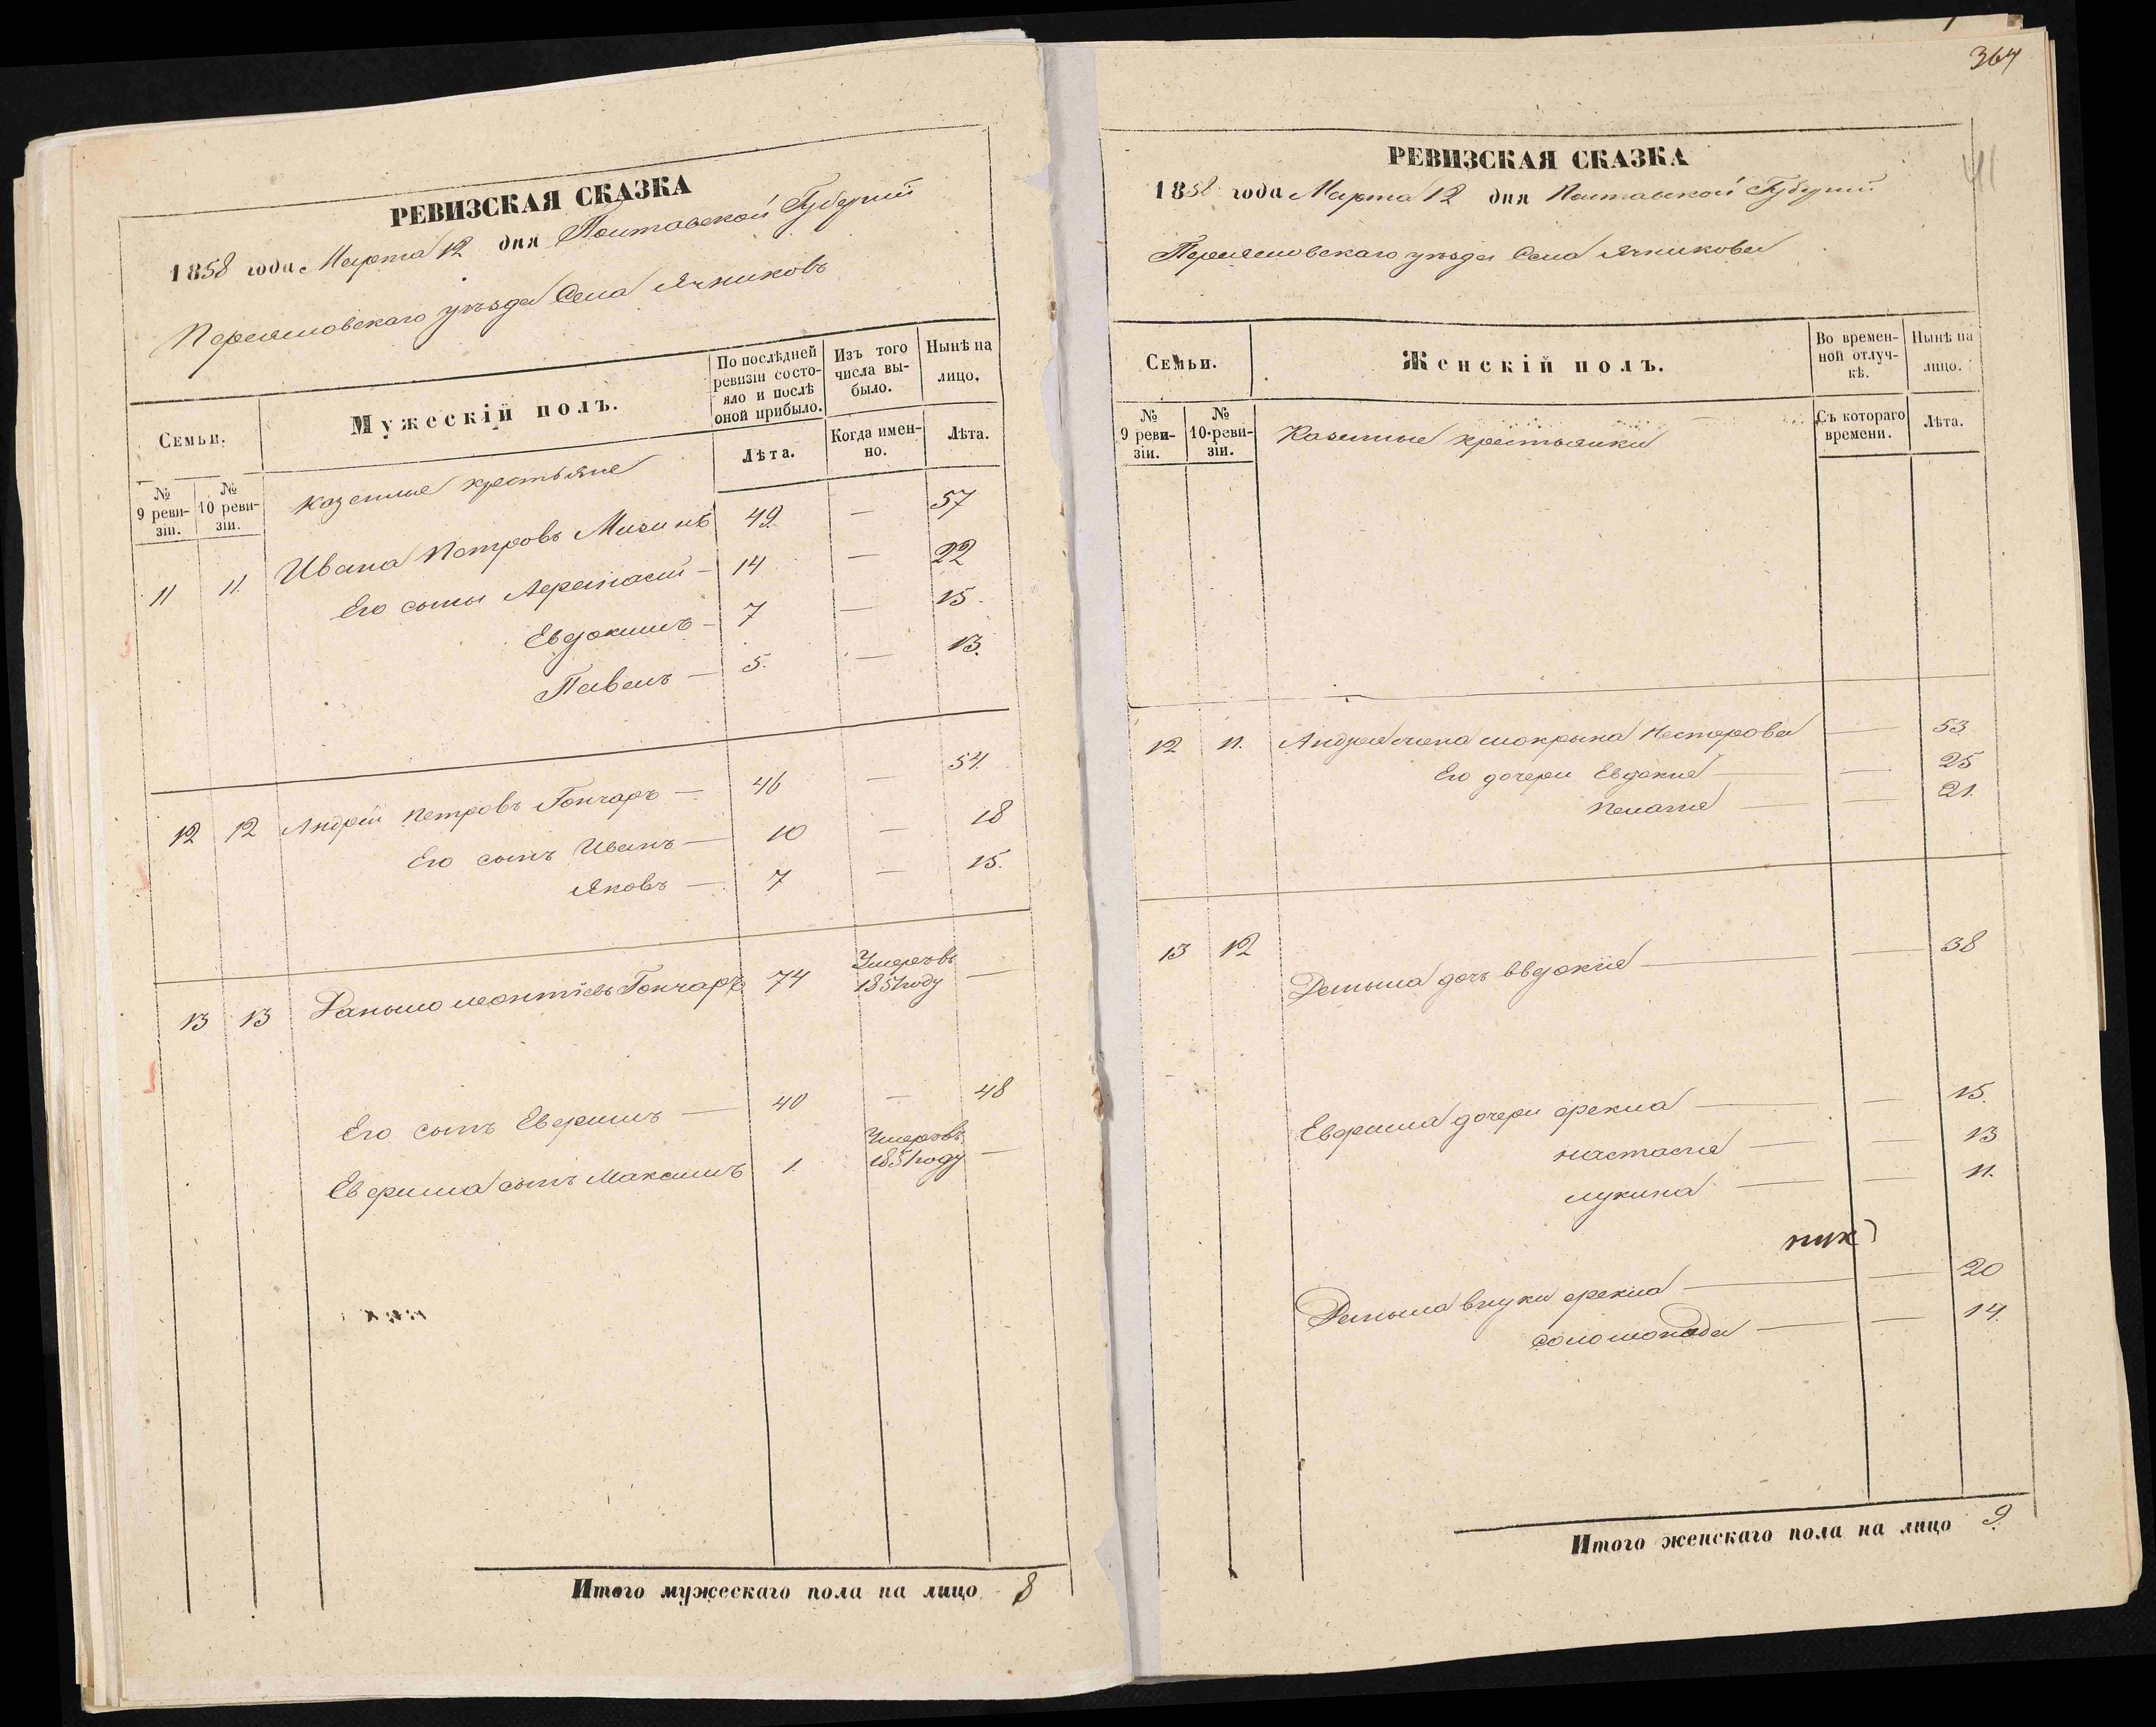 РЕВИЗСКАЯ СКАЗКА
1858 года Марта 12 дня Полтавской Губернiи
Переясловскаго уѣзда Села Ячниковъ
Семьи.
Мужескій полъ.
По послѣдней ревизіи состояло и послѣ оной прибыло.
Изъ того числа выбыло.
Нынѣ на лицо.
№ 9 ревизіи.
№ 10 ревизіи.
Лѣта.
Когда именно.
Лѣта.
казенные крестьяне
11 11. Ивана Петровъ 49. — 57
Его сыны 14 — 22
Евдокимъ — 7 — 15.
Павелъ — 5. — 13.
12 12 Андрій Петровъ Гончаръ — 46 — 54.
Его сынъ Иванъ — 10 — 18
Яковъ — 7 — 15.
13 13 Гончаръ 74 Умеръ въ 1851 году —
Его сынъ Евфимъ — 40 — 48
Евфима сынъ Максимъ 1. Умеръ въ 1851 году —
Итого мужескаго пола на лицо 8
364
41
РЕВИЗСКАЯ СКАЗКА
1858 года Марта 12 дня Полтавской Губернiи
Переясловскаго уѣзда Села Ячникова
Семьи.
Женскій полъ.
Во временной отлучкѣ.
Нынѣ на лицо.
№ 9 ревизіи.
№ 10 ревизіи.
Съ котораго времени.
Лѣта.
Казенные крестьянки
12 11. Андрея жена мокрына Нестерова — 53
Его дочери Евдокия — — 25
Пелагия — — 21.
13 12 Демьяна дочь — — 38
Евфима дочери фекла — — 15.
настасия — — 13
лукина — — 11.
Демьяна внуки фекла — — 20
соломонида — — 14.
Итого женскаго пола на лицо 9.